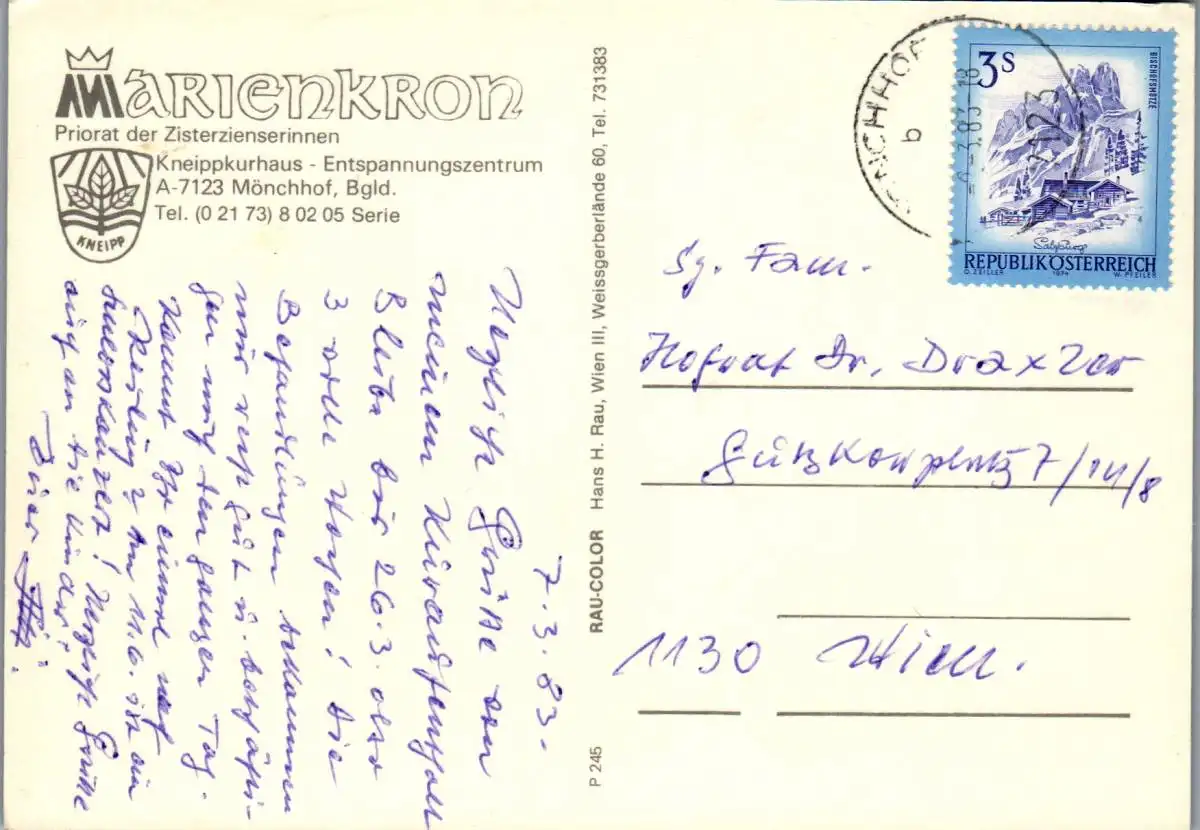 MARIENKRON
Priorat der Zisterzienserinnen
Kneippkurhaus - Entspannungszentrum
A-7123 Mönchhof, Bgld.
Tel. (0 21 73) 8 02 05 Serie
KNEIPP
7.3.83.
Herzliche Grüße von
meinem Kuraufenthalt
Bleibe bis 26.3. also
3 volle Wochen! Die
Behandlungen bekommen
mir sehr gut u. beschäfti-
gen mich den ganzen Tag.
Kommt Ihr einmal nach
am 11.6. ist ein
Schlosskonzert! Herzliche Grüße
auch an die Kinder!
Euer
RAU-COLOR Hans H. Rau, Wien III, Weissgerberlände 60, Tel. 731383
P 245
MÖNCHHOF
b
7123
3 S
BISCHOFSMÜTZE
Salzburg
REPUBLIK ÖSTERREICH
O. ZEILLER 1974 W. PFEILER
Sg. Fam.
Hofrat Dr. Draxler
Gutzkowplatz 7/14/8
1130 Wien.